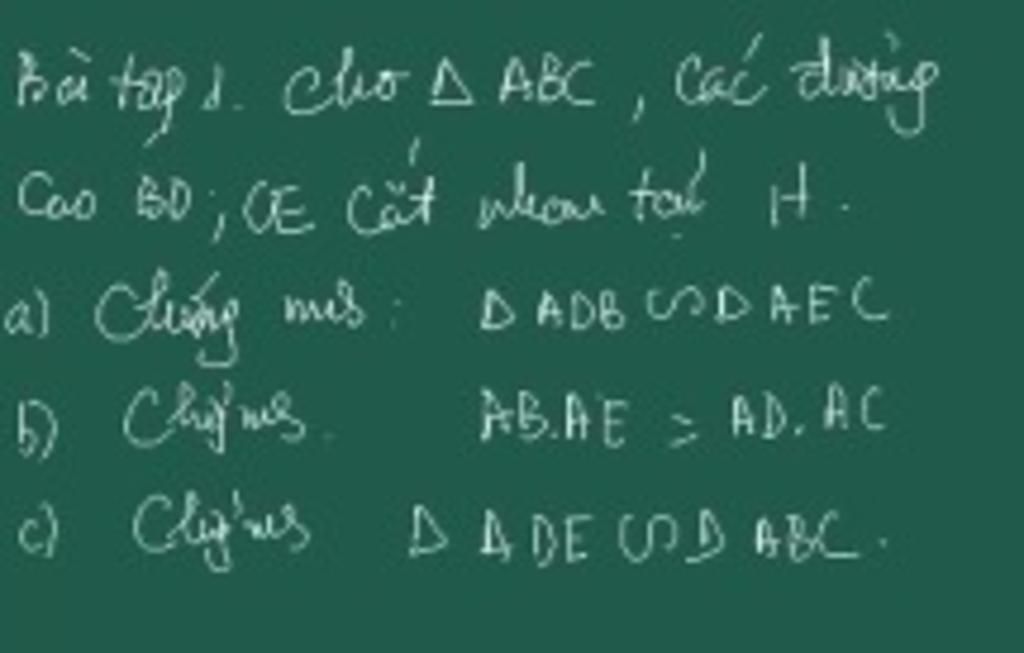 Bài tập 1. Cho Δ ABC, các đường
Cao BD; CE cắt nhau tại H.
a) Chứng ms: Δ ADB ∽ Δ AEC
b) Chứng ms. AB.AE = AD.AC
c) Chứng ms Δ ADE ∽ Δ ABC.